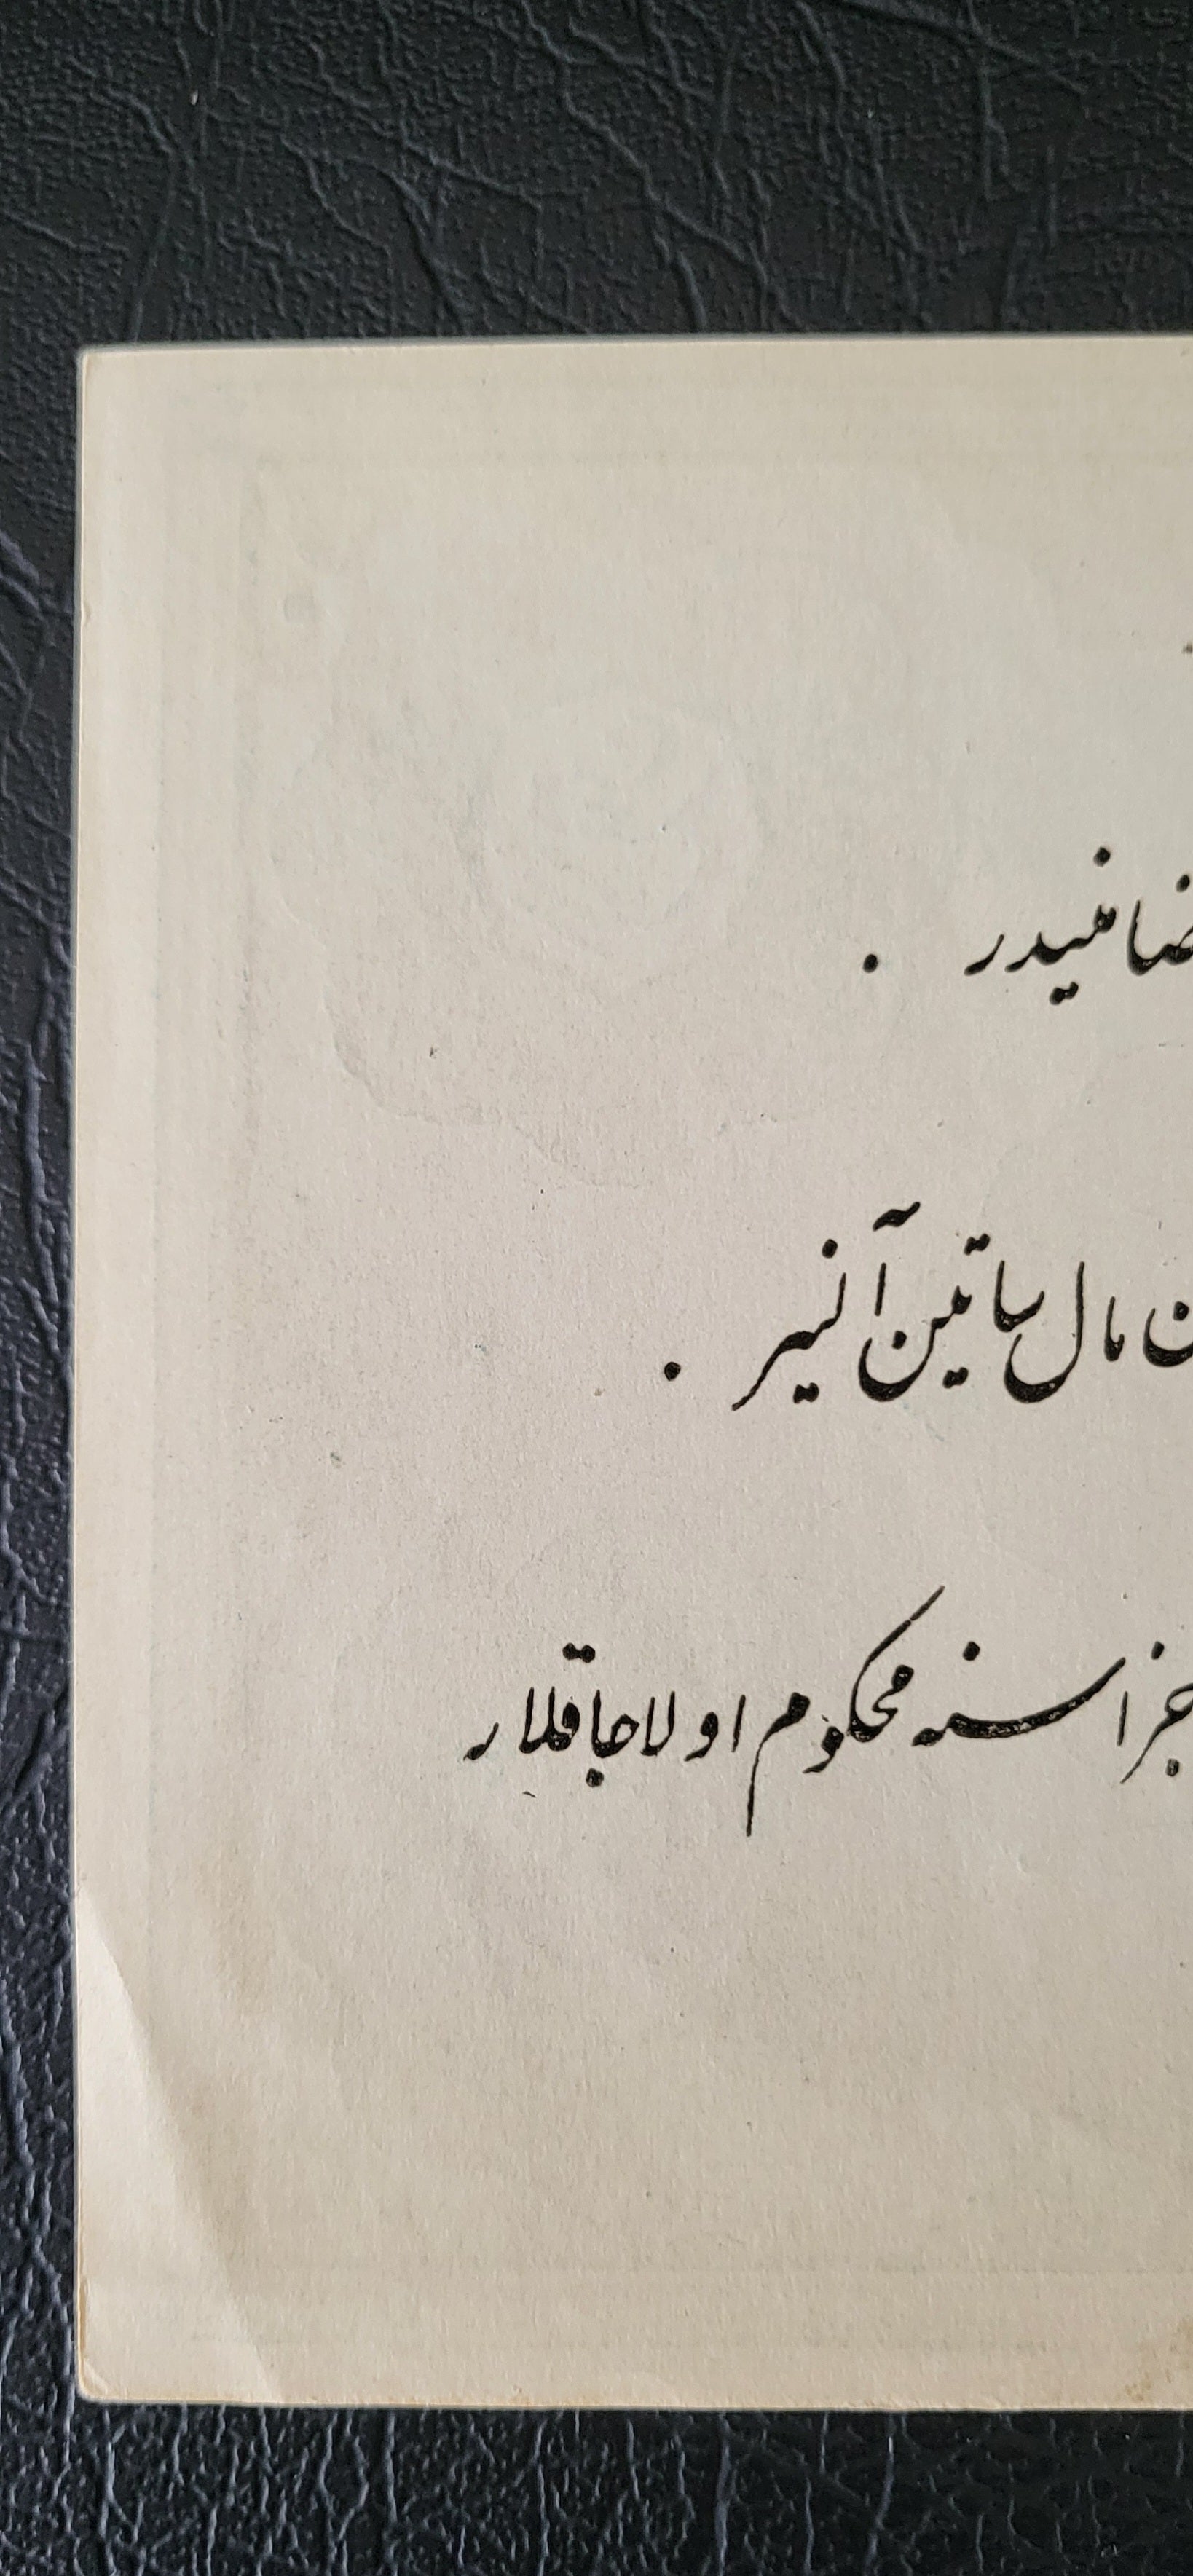 ضامنیدر .
ن مال ساتین آلنیر .
جزاسنه محکوم اولاجاقلار